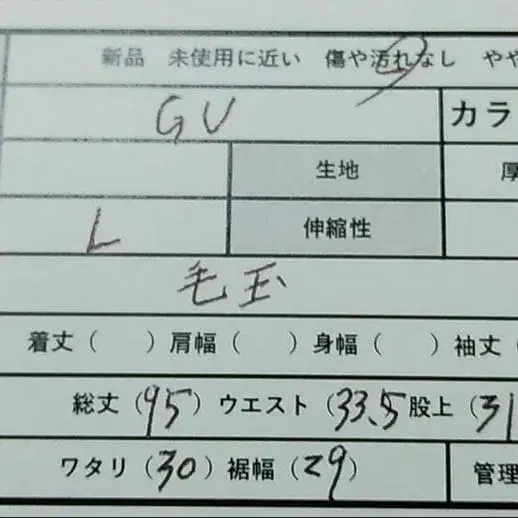 新品 未使用に近い 傷や汚れなし やや
GU カラ
生地 厚
L 伸縮性
毛玉
着丈( )肩幅( )身幅( )袖丈(
総丈(95)ウエスト(33.5 股上(31
ワタリ(30)裾幅(29) 管理